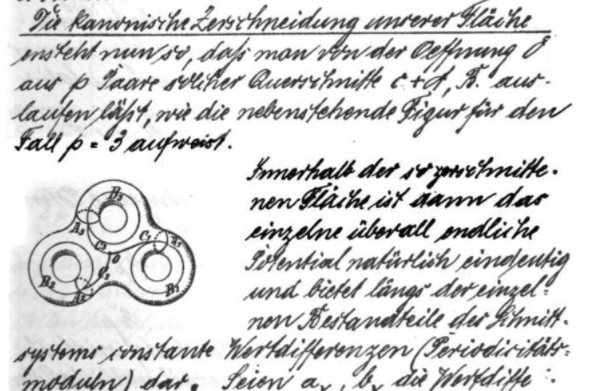 Die kanonische Zerschneidung unserer Fläche
ensteht nun so, daß man von der Oeffnung O
aus p Paare solcher Querschnitte c + A, B. aus-
laufen läßt, wie die nebenstehende Figur für den
Fall p = 3 aufweist.
Innerhalb der so zerschnitte-
nen Fläche ist dann das
einzelne überall endliche
Potential natürlich eindeutig
und bietet längs der einzel-
nen Bestandteile des Schnitt-
systems constante Wertdifferenzen (Periodicitäts-
moduln) dar. Seien a b die Wertdiffe-
B3
A3
C3
C1
A1
O
C2
B2
A2
B1